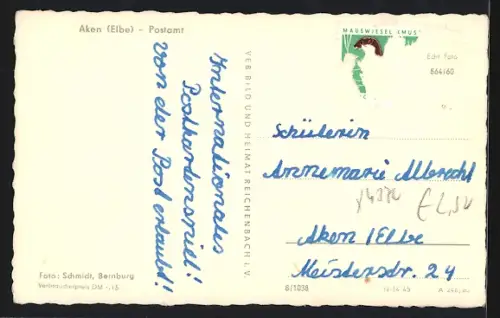 Aken (Elbe) - Postamt
Internationales
Postkartenspiel!
von der Post erlaubt!
Foto: Schmidt, Bernburg
Verbraucherpreis DM -,15
VEB BILD UND HEIMAT REICHENBACH I. V.
MAUSWIESEL (MUS
Echt Foto
564/60
Schülerin
Annemarie Albrecht
Aken/Elbe
Meisterstr. 24
G/1038